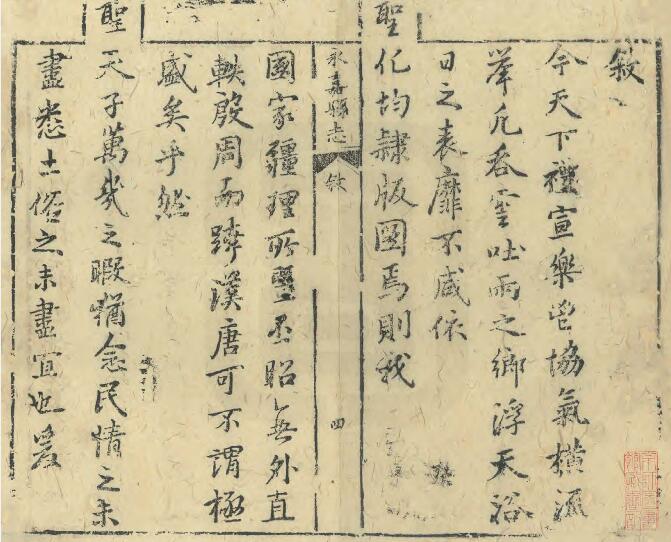 敘
今天下禮宣樂鬯協氣橫流
舉凡吞雲吐雨之鄉浮天浴
日之表靡不咸依
聖化均隸版圖焉則我
永嘉縣志
敘
四
國家疆理所暨丕昭無外直
軼殷周而躋漢唐可不謂極
盛矣乎然
聖天子萬幾之暇猶念民情之未
盡悉土俗之未盡宜也爰